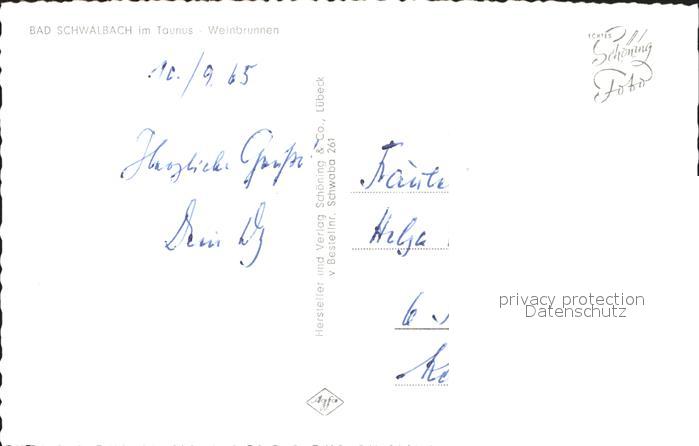 BAD SCHWALBACH im Taunus - Weinbrunnen
ECHTES
Schöning
Foto
10./9. 65
Herzliche Grüße!
Dein
Hersteller und Verlag Schöning & Co., Lübeck
v Bestellnr. Schwaba 261
Fräule
Helga
6
privacy protection
Datenschutz
Agfa